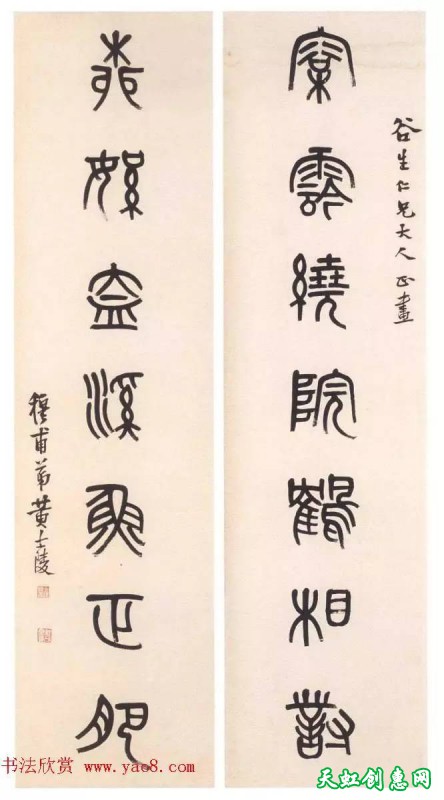 谷生仁兄大人正畫
繞院鶴相對
絮溪魚正肥
穆甫弟黄士陵
书法欣赏 www.yac8.com
天虹创惠网